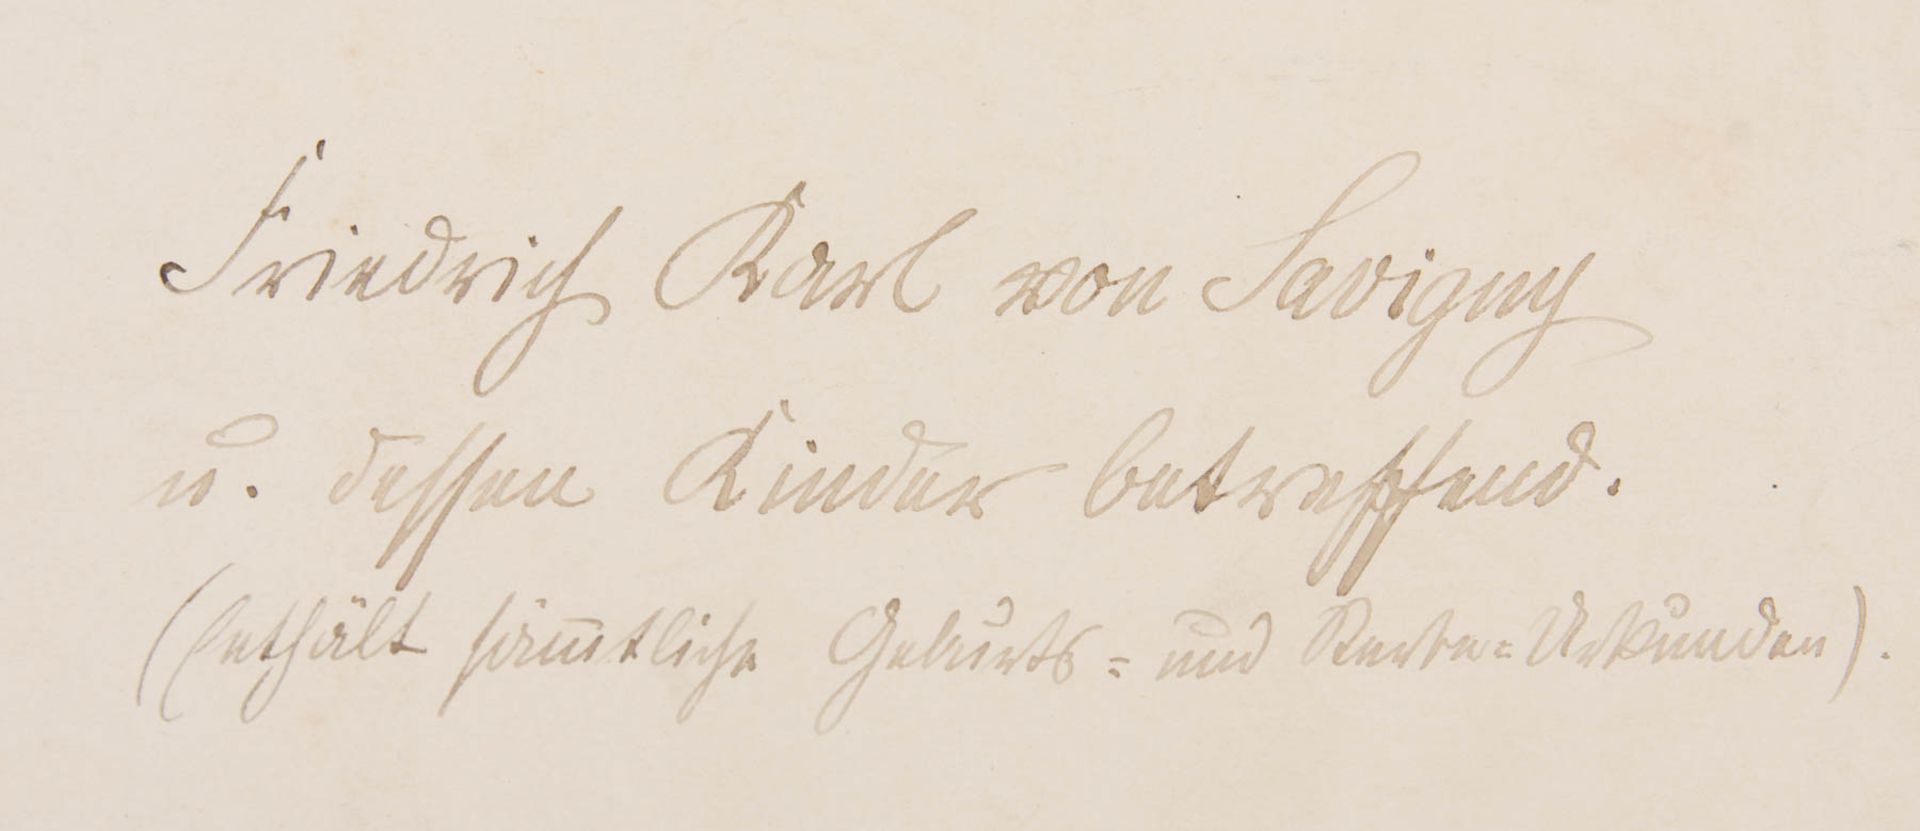 Friedrich Karl von Savigny
u. dessen Kinder betreffend.
(enthält sämtliche Geburts- und Urkunden).